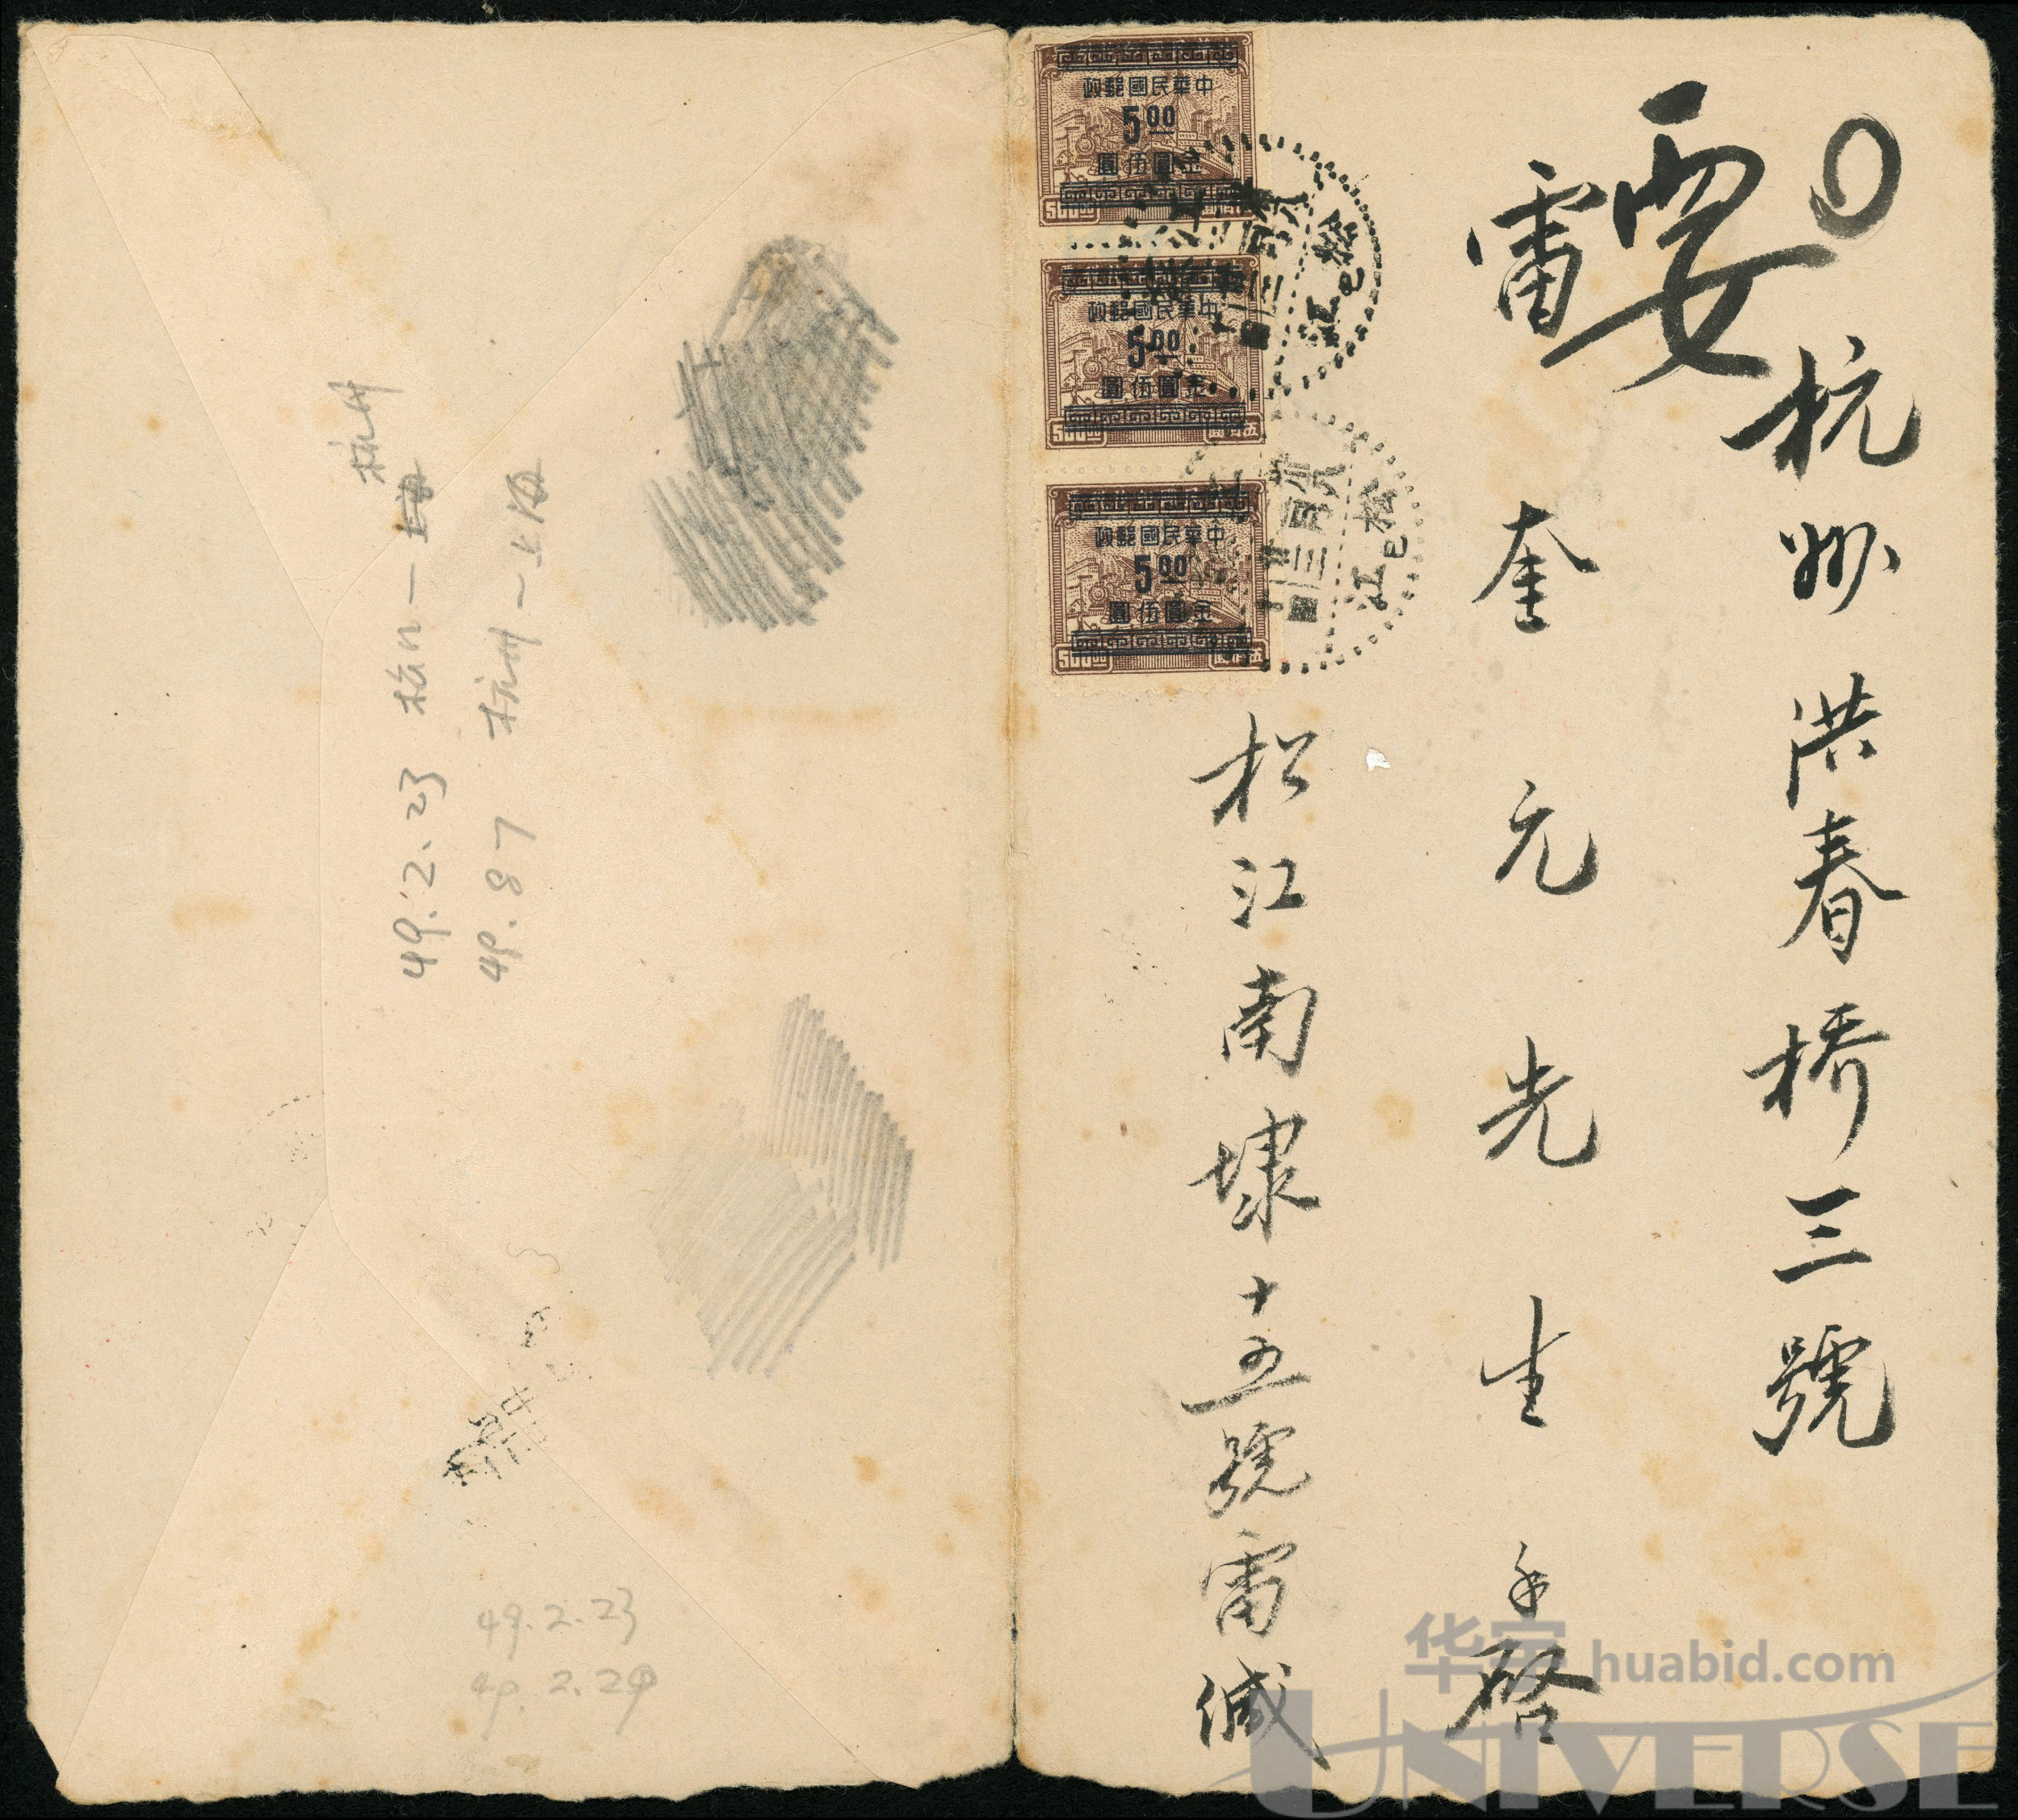 要
杭州洪春橋三號
雷奎元先生手啓
松江南埭十五號雷缄
中華民國郵政
5.00
金圓伍圓
500.00
中華民國郵政
5.00
金圓伍圓
500.00
伍佰圓
中華民國郵政
5.00
金圓伍圓
500.00
松江
松江
杭州
49.2.23
49.8 7 杭州-上海
49.2.23
49.2.24
华宇 huabid.com
UNIVERSE